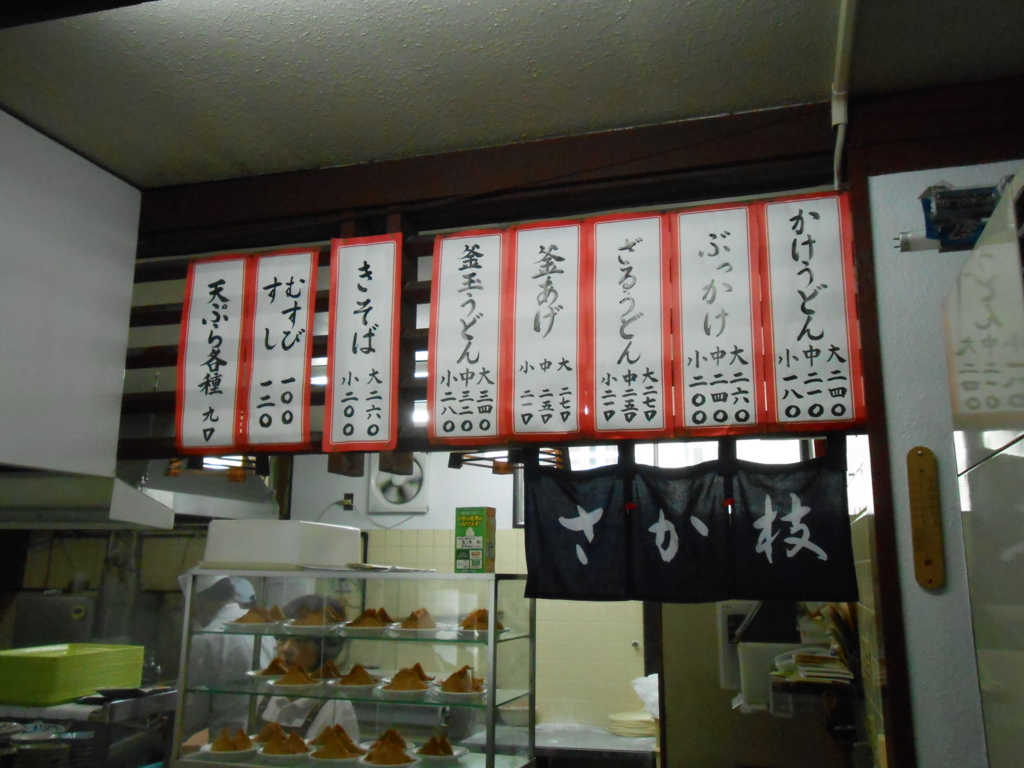 かけうどん
大二四〇
中二一〇
小一八〇
ぶっかけ
大二六〇
中二四〇
小二〇〇
ざるうどん
大二七〇
中二五〇
小二一〇
釜あげ
大二七〇
中二五〇
小二一〇
釜玉うどん
大三四〇
中三二〇
小二八〇
きそば
大二六〇
小二〇〇
むすび 一〇〇
すし 一二〇
天ぷら各種 九〇
さか枝